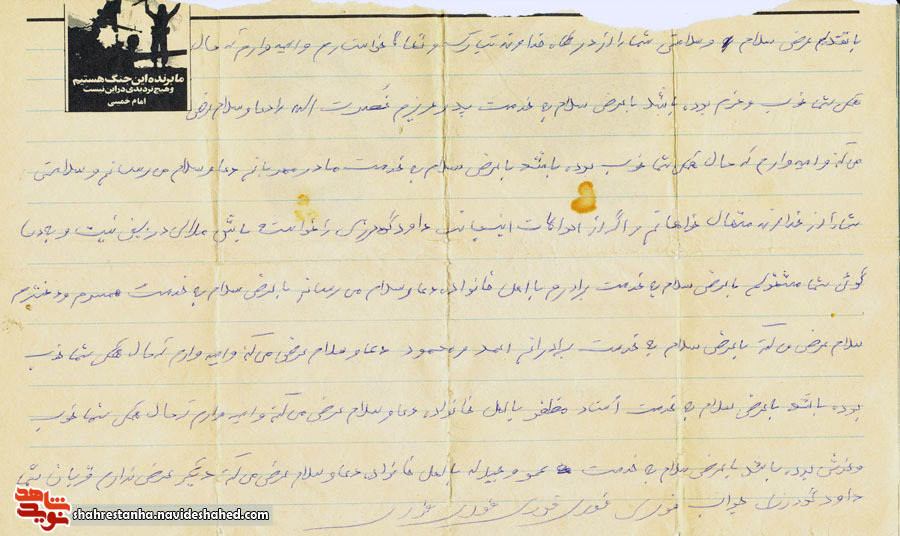 ما برنده این جنگ هستیم
و هیچ تردیدی در این نیست
امام خمینی
با تقدیم عرض سلام و سلامتی شما را از درگاه خداوند تبارک و تعالی خواستارم و امیدوارم که حال
همگی شما خوب و خرم بوده باشد با عرض سلام به خدمت پدر عزیزم نصرت اله را دعا و سلام عرض
می کنم و امیدوارم که حال همگی شما خوب بوده باشد با عرض سلام به خدمت مادر مهربانم دعا و سلام می رسانم و سلامتی
شما را از خداوند متعال خواهانم و اگر از احوالات اینجانب داود گودرزی را خواسته باشی ملالی در بین نیست و به دعا
گوئی شما مشغولم با عرض سلام به خدمت برادرم با اهل خانواده دعا و سلام می رسانم با عرض سلام به خدمت همسرم و دخترم
سلام عرض می کنم با عرض سلام به خدمت برادرانم احمد و محمود دعا و سلام عرض می کنم و امیدوارم که حال همگی شما خوب
بوده باشد با عرض سلام به خدمت استاد مظفر با اهل خانواده دعا و سلام عرض می کنم و امیدوارم که حال همگی شما خوب
و خوش بوده باشد با عرض سلام به خدمت عمو با اهل خانواده دعا و سلام عرض می کنم دیگر عرض ندارم قربان شما
داود گودرزی جواب فوری فوری فوری فوری فوری
نوید شاهد
shahrestanha.navideshahed.com